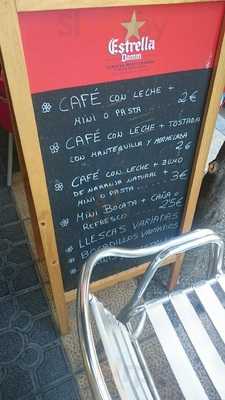 Estrella
Damm
CAFÉ CON LECHE +
MINI O PASTA ... 2€
CAFÉ CON LECHE + TOSTADA
CON MANTEQUILLA Y MERMELADA
2€
CAFÉ CON LECHE + ZUMO
DE NARANJA NATURAL +
MINI O PASTA ... 3€
MINI BOCATA + CAÑA O
REFRESCO 25€
LLESCAS VARIADAS
BOCADILLOS VARIADOS